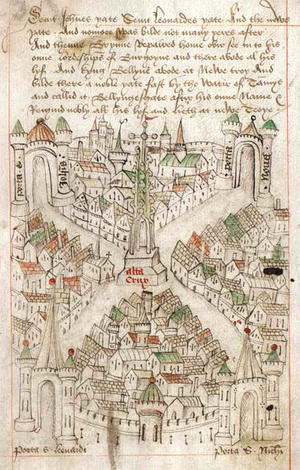 Seint Johnes yate Seint leonardes yate And the newe
yate. And nomore was bilde not many yeres after
And thenne Brynne Repaired home ovir see in to his
owne lordships of Burgoyne and there abode al his
lyf. And kyng Bellyne abode at Newe troy And
bilde there a noble yate fast by the Water of Tamys
and called it Bellynesgate after his owne Name &
Reigned nobly al his lyf. and lieth at newe Troye
porta s. Johis
porta Noua
alta
Crux
porta s. leonardi
Porta S. Nichi